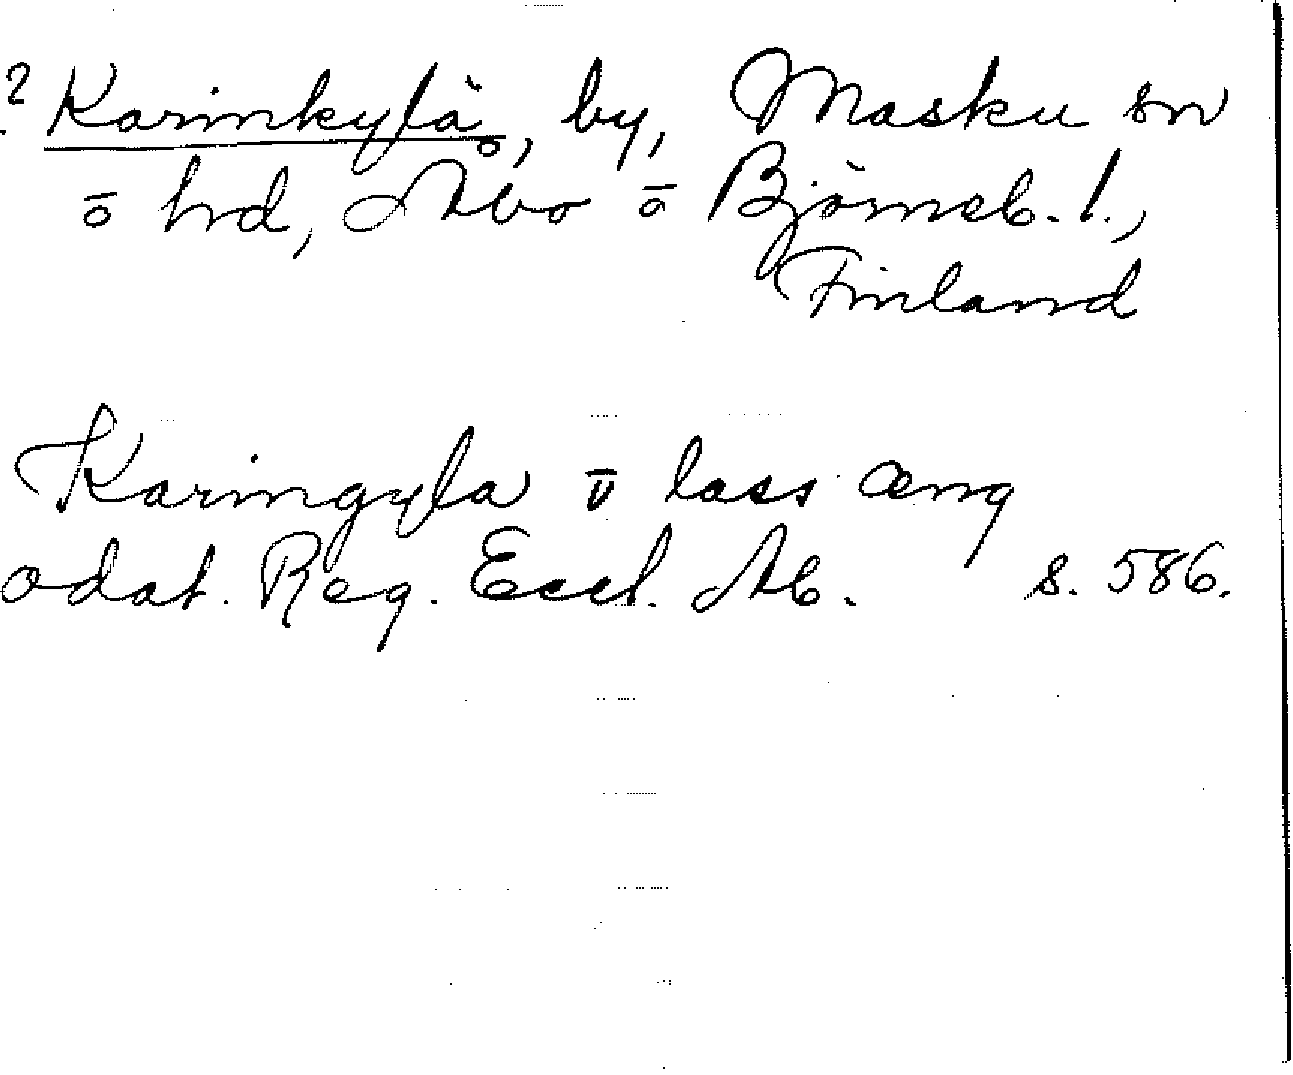 ? Karinkylä, by, Masku sn
ō hd, Åbo ō Björneb. l.,
Finland
Karingyla v̄ lass æng
odat. Reg. Eccl. Ab. s. 586.